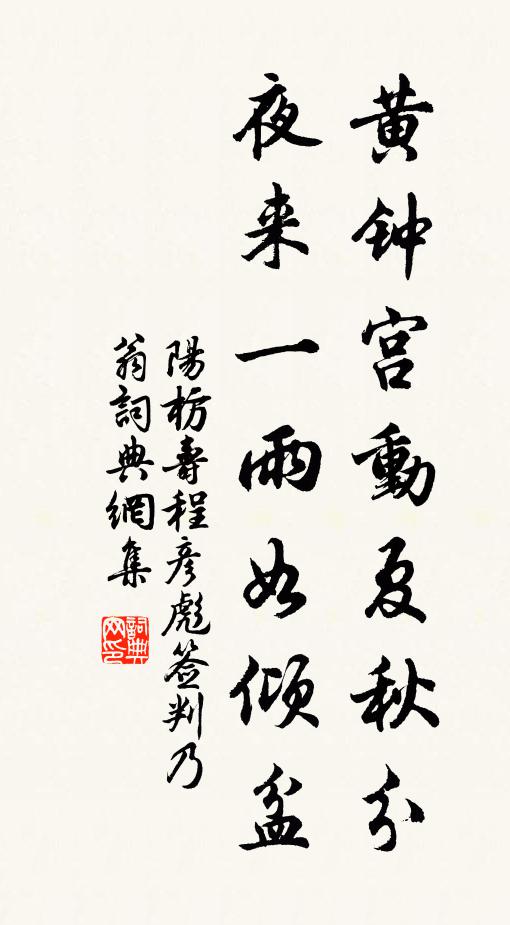 黄钟宫動夏秋分
夜来一雨如傾盆
陽枋壽程彦彪簽判乃
翁詞典網集
詞典
网印